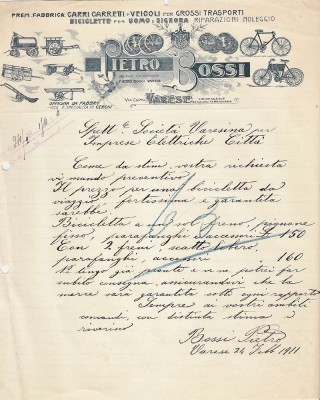 PREM. FABBRICA CARRI CARRETI & VEICOLI PER GROSSI TRASPORTI
BICICLETTE PER UOMO & SIGNORA RIPARAZIONI NOLEGGIO
PIETRO BOSSI
VARESE
OFFICINA DA FABBRO
Spett.e Società Varesina per
Imprese Elettriche Città
Come da stim. vostra richiesta
vi mando preventivo
Il prezzo per una bicicletta da
viaggio, fortissima e garantita
sarebbe.
Bicicletta a un sol freno, pignone
fisso, parafanghi accessori £ 150
Con 2 freni, scatto libero,
parafanghi, accessori . 160
1ª tengo già pronte e ve ne potrei far
subito consegna, assicurandovi che la
merce sarà garantita sotto ogni rapporto
Sempre ai vostri ambiti
comandi, con distinta stima
riverisco
Bossi Pietro
Varese 24 Febb 1911